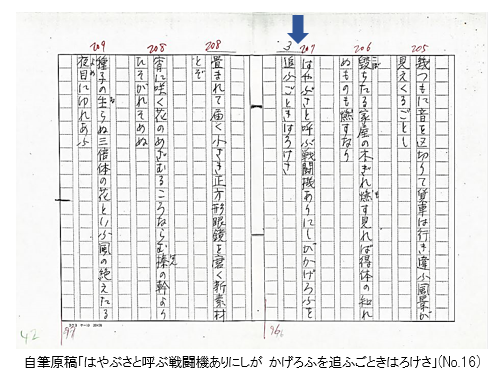 205
幾つもに音を区切りて貨車は行き違ふ風景が
見えくるごとし
206
毀ちたる家屋の木ぎれ燃す見れば得体の知れ
ぬものも燃すなり
207
はやぶさと呼ぶ戦闘機ありにしがかげろふを
追ふごときはろけさ
3
208
畳まれて届く小さき正方形眼鏡を磨く新素材
とぞ
宵に咲く花のめざむるころならむ 幹より
そめぬ
209
種子の生らぬ三倍体の花といふ風の絶えたる
夜目にゆれあふ
42
97
96
自筆原稿「はやぶさと呼ぶ戦闘機ありにしが かげろふを追ふごときはろけさ」(No.16)